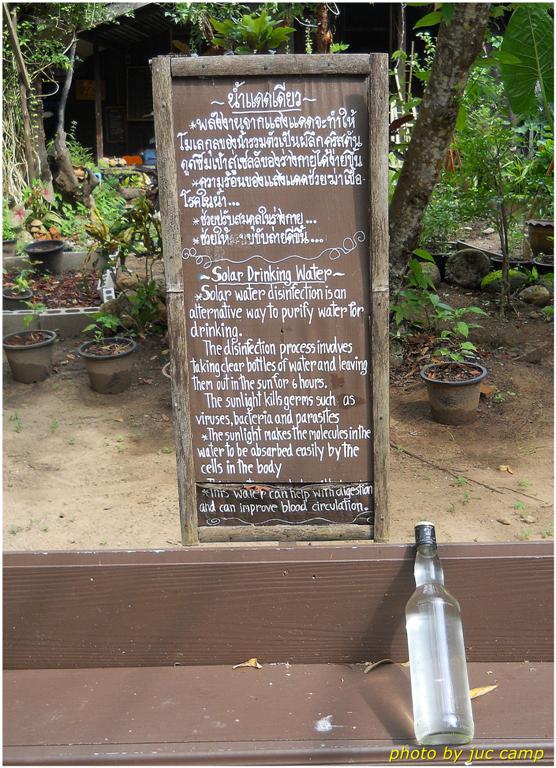 ~น้ำแดดเดียว~
*พลังงานจากแสงแดดจะทำให้
โมเลกุลของน้ำรวมตัวเป็นผลึกคริสตัน
ดูดซึมเข้าสู่เซลล์ของร่างกายได้ง่ายขึ้น
*ความร้อนของแสงแดดช่วยฆ่าเชื้อ
โรคในน้ำ...
*ช่วยปรับสมดุลในร่างกาย...
*ช่วยให้ระบบขับถ่ายดีขึ้น...
~Solar Drinking Water~
*Solar water disinfection is an
alternative way to purify water for
drinking.
The disinfection process involves
taking clear bottles of water and leaving
them out in the sun for 6 hours.
The sunlight kills germs such as
viruses, bacteria and parasites
*The sunlight makes the molecules in the
water to be absorbed easily by the
cells in the body
*This water can help with digestion
and can improve blood circulation.
photo by juc camp